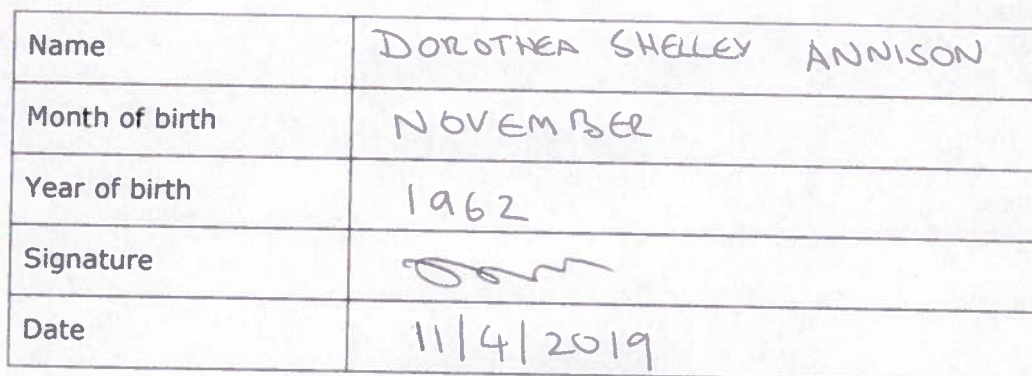 Name DOROTHEA SHELLEY ANNISON
Month of birth NOVEMBER
Year of birth 1962
Signature
Date 11/4/2019